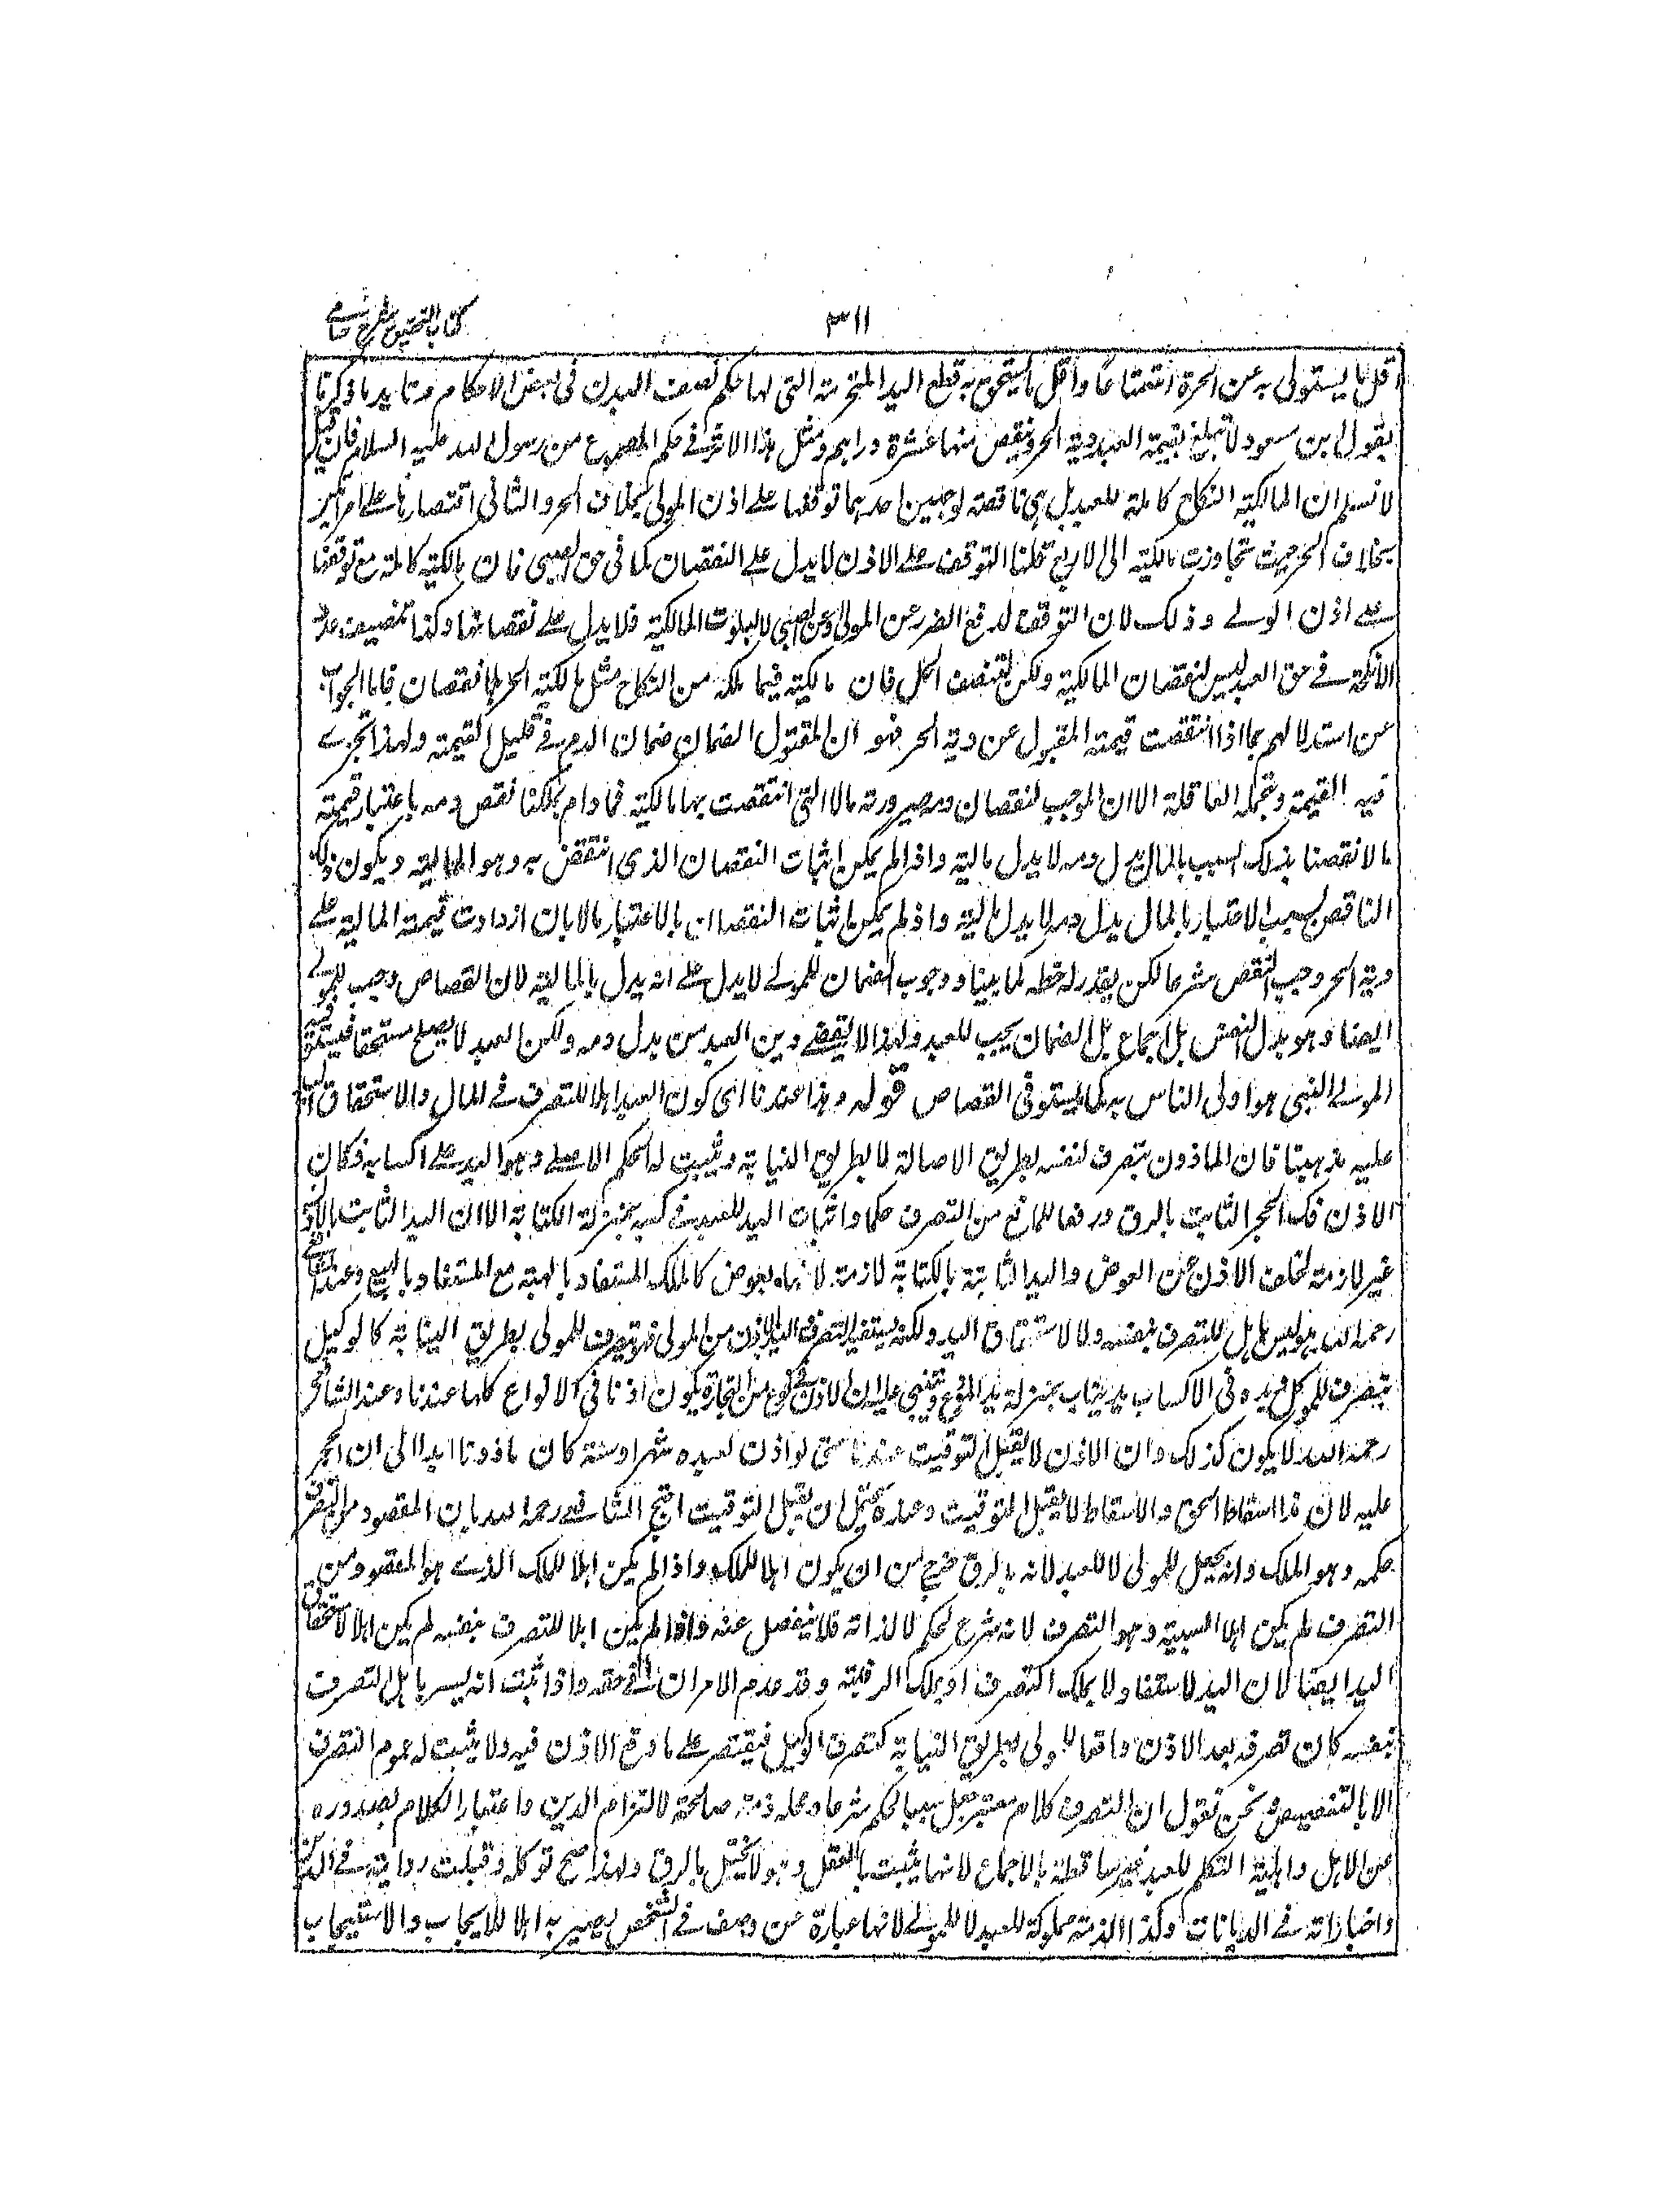 ٣١١
كتاب التحقيق شرح حسامي
اقل ما يستولى به عن الحرة استمتاعا واقل ما يستحق به قطع اليد المحترمة التى لها حكم نصف البدن فى بعض الاحكام وتايد ما ذكرنا
بقول ابن مسعود لا تبلغ بقيمة العبد دية الحر وينقص منها عشرة دراهم ومثل هذا الاثر فى حكم المسموع من رسول الله عليه السلام فان قيل
لا نسلم ان المالكية النكاح كاملة للعبد بل هى ناقصة لوجهين احدهما توقفها على اذن المولى بخلاف الحر والثانى اقتصارها على امرأتين
بخلاف الحر حيث تجاوزت مالكيته الى الاربع قلنا التوقف على الاذن لا يدل على النقصان كما فى حق الصبى فان مالكيته كاملة مع توقفها
على اذن الولى وذلك لان التوقف لدفع الضرر عن المولى وعن الصبى لا لثبوت المالكية فلا يدل على نقصانها وكذا تنصيف عدد
الانكحة فى حق العبد ليس لنقصان المالكية ولكن لتنصف الحل فان مالكيته فيما ملكه من النكاح مثل مالكية الحر بلا نقصان فاما الجواب
عن استدلالهم بما اذا انتقصت قيمته المقبول عن دية الحر فهو ان المقتول الضمان ضمان الدم فى قليل القيمة ولهذا تجرى
فيه القيمة وتحمله العاقلة الا ان الموجب لنقصان دمه صيرورته مالا التى انتقصت بها مالكيته فما دام يمكننا نقص دمه باعتبار قيمته
مالا نقصنا بذلك لسبب بالمال بدل دمه لا بدل ماليته واذا لم يمكن اثبات النقصان الذى انتقض به وهو المالية ويكون ذلك
الناقص بسبب الاعتبار بالمال بدل دمه لا بدل ماليته واذا لم يمكن اثبات النقصان بالاعتبار مالا بان ازدادت قيمته المالية على
دية الحر وجب النقص شرعا لكن بقدر له خطر كما بينا ووجوب الضمان للمولى لا يدل على انه بدل بالمالية لان القصاص وجب للمولى
ايضا وهو بدل النفس بل اجماع بل الضمان يجب للعبد ولهذا لا يقضى دين العبد من بدل دمه ولكن العبد لا يصلح مستحقا فيستوفيه
المولى الذى هو اولى الناس به كما يستوفى القصاص قوله وهذا عندنا اى كون العبد اهلا للتصرف فى المال والاستحقاق
عليه مذهبنا فان الماذون يتصرف لنفسه بطريق الاصالة لا بطريق النيابة ويثبت له الحكم الاصلى وهو اليد على اكسابه فكان
الاذن فك الحجر الثابت بالرق ورفعا للمانع من التصرف حكما واثبات اليد للعبد فى كسبه بمنزلة الكتابة الا ان اليد الثابت بالاذن
غير لازمة لخلو الاذن عن العوض واليد الثابتة بالكتابة لازمة لانها بعوض كالملك المستفاد بالهبة مع المستفاد بالبيع وعند الشافعى
رحمه الله هو ليس باهل للتصرف بنفسه ولا لاستحقاق اليد ولكنه يستفيد التصرف اليد بالاذن من المولى فهو يتصرف للمولى بطريق النيابة كالوكيل
يتصرف للموكل ويده فى الاكساب يد نيابة بمنزلة يد المودع ويبتنى عليه ان الاذن فى نوع من التجارة يكون اذنا فى الانواع كلها عندنا وعند الشافعى
رحمه الله لا يكون كذلك وان الاذن لا يقبل التوقيت عندنا حتى لو اذن لعبده شهرا او سنة كان ماذونا ابدا الى ان الحجر
عليه لان هذا اسقاط الحق والاسقاط لا يقبل التوقيت وعنده يحتمل ان يقبل التوقيت احتج الشافعى رحمه الله بان المقصود من التصرف
حكمه وهو الملك وانه يحصل للمولى لا للعبد لانه بالرق خرج من ان يكون اهلا للملك واذا لم يكن اهلا للملك الذى هو المقصود من
التصرف لم يكن اهلا لسببه وهو التصرف لانه شرع لحكم لا لذاته فلا ينفصل عنه واذا لم يكن اهلا للتصرف بنفسه لم يكن اهلا لاستحقاق
اليد ايضا لان اليد لا يستفاد ولا بملك التصرف او بملك الرقبة وقد عدم الامران فى حقه واذا ثبت انه ليس باهل التصرف
بنفسه كان تصرفه بعد الاذن واقعا للمولى بطريق النيابة كتصرف الوكيل فيقتصر على ما وقع الاذن فيه ولا يثبت له عموم التصرف
الا بالتنصيص ونحن نقول ان التصرف كلام معتبر جعل سببا لحكم شرعا ومحله ذمة صالحة لالتزام الدين واعتبار الكلام بصدوره
عن الاهل واهلية التكلم للعبد غير ساقطة بالاجماع لانها يثبت بالعقل وهو لا يختل بالرق ولهذا صح توكله وقبلت روايته فى الدين
واخباراته فى الديانات وكذا الذمة مملوكة للعبد لا للمولى لانها عبارة عن وصف فى الشخص يصير به اهلا للايجاب والاستيجاب